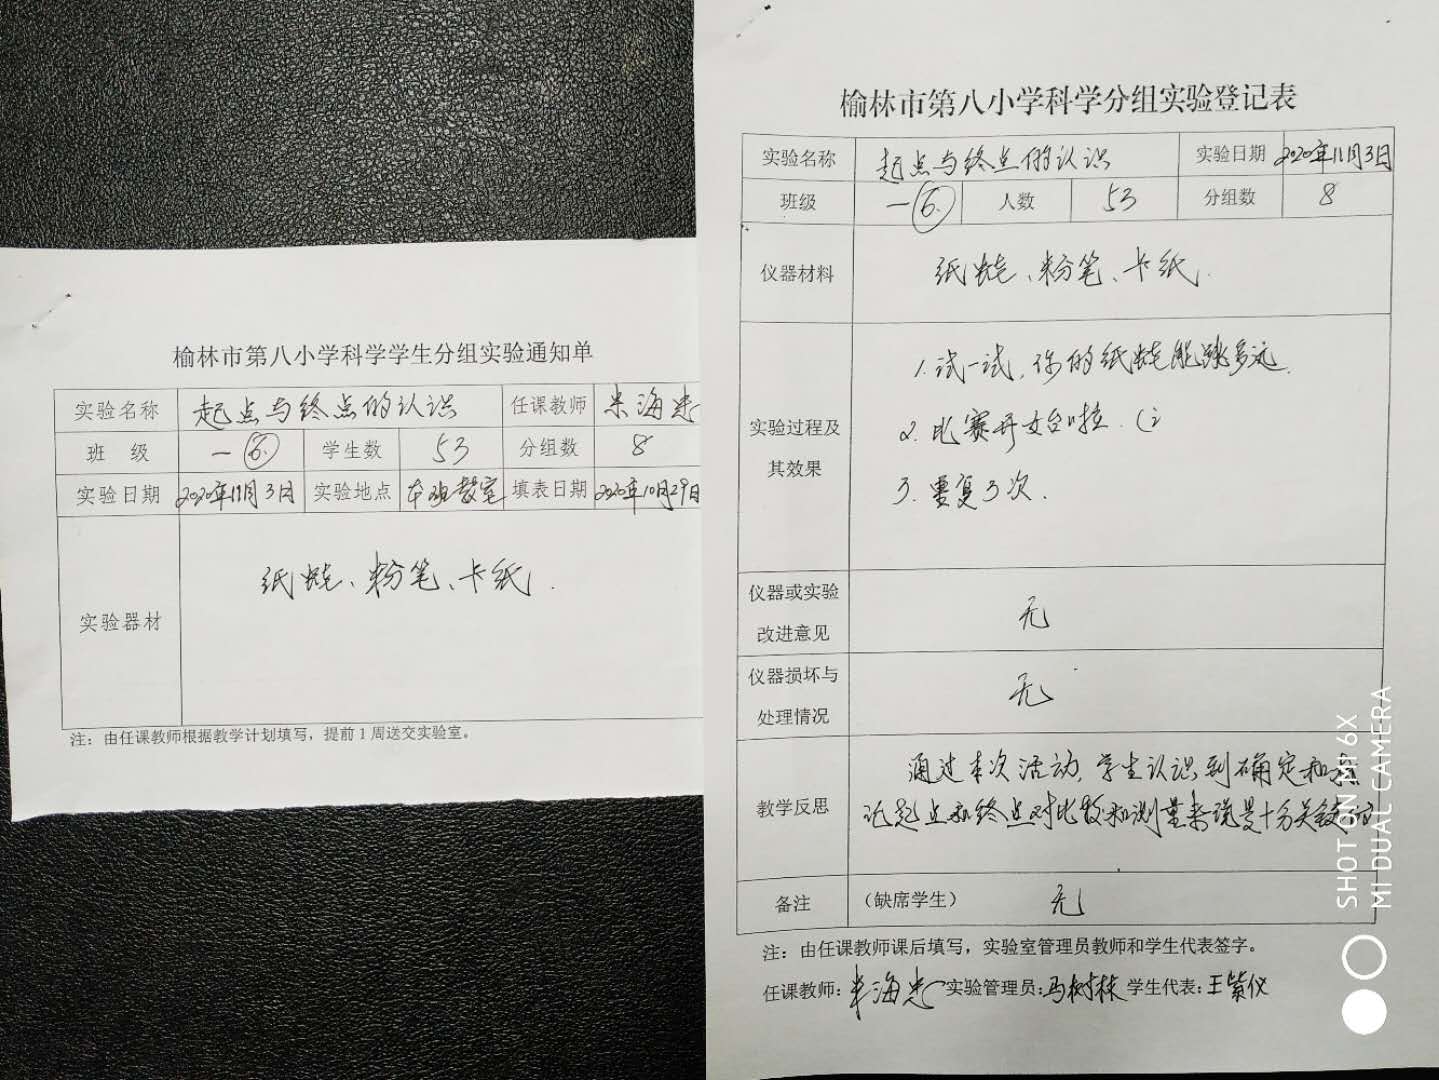 榆林市第八小学科学学生分组实验通知单
实验名称 起点与终点的认识 任课教师 米海忠
班 级 一⑥ 学生数 53 分组数 8
实验日期 2020年11月3日 实验地点 本班教室 填表日期 2020年10月29日
实验器材 纸蛙、粉笔、卡纸.
注：由任课教师根据教学计划填写，提前1周送交实验室。
榆林市第八小学科学分组实验登记表
实验名称 起点与终点的认识 实验日期 2020年11月3日
班级 一⑥ 人数 53 分组数 8
仪器材料 纸蛙、粉笔、卡纸.
实验过程及
其效果
1.试一试，你的纸蛙能跳多远.
2.比赛开始啦.
3.重复3次.
仪器或实验
改进意见
无
仪器损坏与
处理情况
无
教学反思
通过本次活动，学生认识到确定和标
记起点和终点对比较和测量来说是十分关键的
备注 （缺席学生） 无
注：由任课教师课后填写，实验室管理员教师和学生代表签字。
任课教师：米海忠 实验管理员：马树林 学生代表：王紫仪
SHOT ON MI 6X
MI DUAL CAMERA